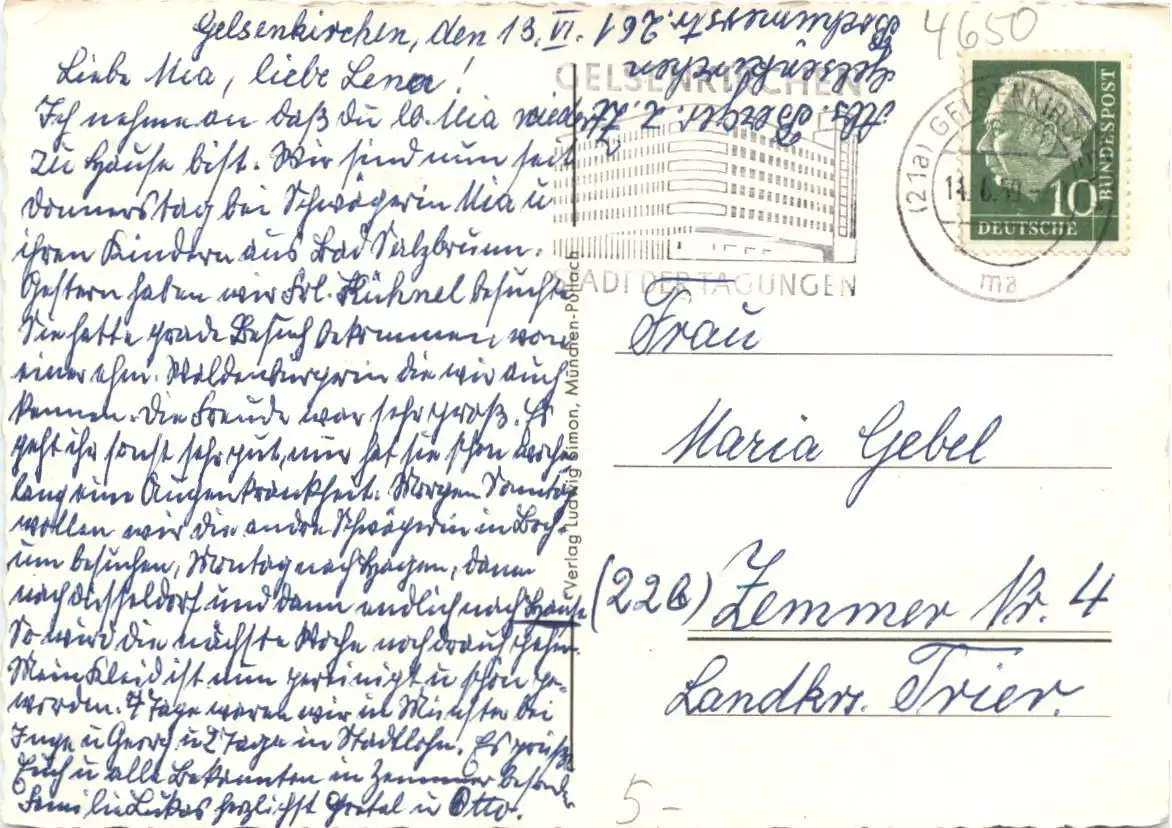 Gelsenkirchen, den 13. VI.
Liebe Mia, liebe Lena!
Ich nehme an daß du lb. Mia wieder
zu Hause bist. Wir sind nun seit
Donnerstag bei Schwägerin Mia u
ihren Kindern aus Bad Salzbrunn.
Gestern haben wir Frl. Kühnel besucht.
Sie hatte grade Besuch bekommen von
einer ehm. Waldenburgerin die wir auch
kennen. Die Freude war sehr groß. Es
geht ihr sonst sehr gut, nur hat sie schon wochen
lang eine Augenkrankheit. Morgen Sonntag
wollen wir die andre Schwägerin in Boch-
um besuchen, Montag nach Hagen, dann
nach Düsseldorf und dann endlich nach Hause
So wird die nächste Woche noch drauf gehn.
Mein Kleid ist nun gereinigt u schön ge-
worden. 4 Tage waren wir in Münster bei
Inge u Georg u 2 Tage in Stadtlohn. Es grüßt
Euch u alle Bekannten in Zemmer besonders
Familie Lukas herzlichst Gretel u Otto.
Abs. Berger z. Zt.
Gelsenkirchen
Bochumerstr. 261
4650
GELSENKIRCHEN
STADT DER TAGUNGEN
(21a) GELSENKIRCHEN
14. 6. 59
ma
10
DEUTSCHE
BUNDESPOST
Verlag Ludwig Simon, München-Pullach
Frau
Maria Gebel
(22b) Zemmer Nr. 4
Landkrs. Trier.
5-